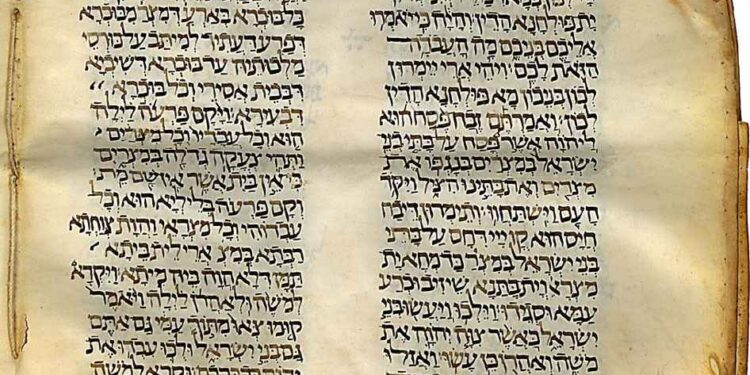 ית פולחנא הדין והיה כי יאמרו
אליכם בניכם מה העבדה
הזאת לכם ויהי ארי יימרון
לכון בנכון מא פולחנא הדין
לכון ואמרתם זבח פסח הוא
ליהוה אשר פסח על בתי בני
ישראל במצרים בנגפו את
מצרים ואת בתינו הציל ויקד
העם וישתחוו ותימרון דיבח
חיס הוא קד ייי דחס על בתי
בני ישראל במצר כד מחא ית
מצראי וית בתנא שזיב וכרע
עמא וסגידו וילכו ויעשו בני
ישראל כאשר צוה יהוה את
משה ואהרן כן עשו ואזלו
כל בוכרא בארע דמצר מבוכרא
דפרעה דעתיד למיתב על כורסי
מלכותיה עד בוכרא דשיביא
דבבית אסירי וכל בוכרא
דבעירא ויקם פרעה לילה
הוא וכל עבדיו וכל מצרים
ותהי צעקה גדלה במצרים
כי אין בית אשר אין שם מת
וקם פרעה בליליא הוא וכל
עבדוהי וכל מצראי והות צוחתא
רבתא במצ ארי לית ביתא
תמן דלא הוה ביה מיתא ויקרא
למשה ולאהרן לילה ויאמר
קומו צאו מתוך עמי גם אתם
גם בני ישראל ולכו עבדו את
יהוה כדברכם וקרא למשה